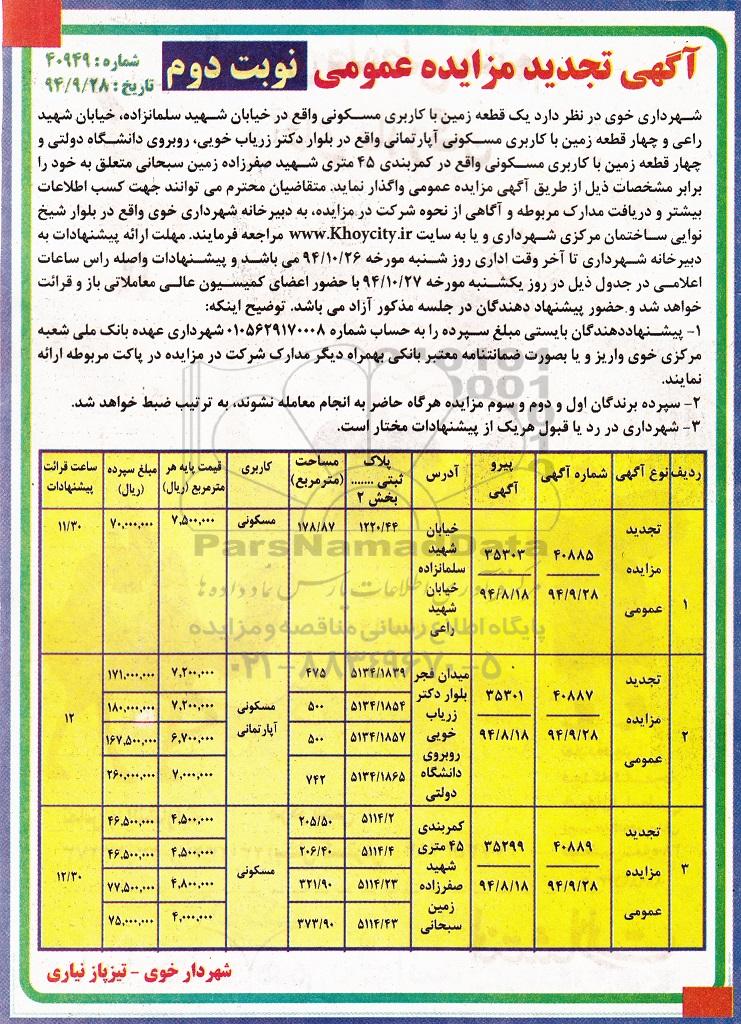 آگهی تجدید مزایده عمومی نوبت دوم
شماره: ۴۰۹۴۹
تاریخ: ۹۴/۹/۲۸
شهرداری خوی در نظر دارد یک قطعه زمین با کاربری مسکونی واقع در خیابان شهید سلمانزاده، خیابان شهید
راعی و چهار قطعه زمین با کاربری مسکونی آپارتمانی واقع در بلوار دکتر زریاب خویی، روبروی دانشگاه دولتی و
چهار قطعه زمین با کاربری مسکونی واقع در کمربندی ۴۵ متری شهید صفرزاده زمین سبحانی متعلق به خود را
برابر مشخصات ذیل از طریق آگهی مزایده عمومی واگذار نماید. متقاضیان محترم می توانند جهت کسب اطلاعات
بیشتر و دریافت مدارک مربوطه و آگاهی از نحوه شرکت در مزایده، به دبیرخانه شهرداری خوی واقع در بلوار شیخ
نوایی ساختمان مرکزی شهرداری و یا به سایت www.Khoycity.ir مراجعه فرمایند. مهلت ارائه پیشنهادات به
دبیرخانه شهرداری تا آخر وقت اداری روز شنبه مورخه ۹۴/۱۰/۲۶ می باشد و پیشنهادات واصله راس ساعات
اعلامی در جدول ذیل در روز یکشنبه مورخه ۹۴/۱۰/۲۷ با حضور اعضای کمیسیون عالی معاملاتی باز و قرائت
خواهد شد و حضور پیشنهاد دهندگان در جلسه مذکور آزاد می باشد. توضیح اینکه:
۱- پیشنهاددهندگان بایستی مبلغ سپرده را به حساب شماره ۰۱۰۵۶۲۹۱۷۰۰۰۸ شهرداری عهده بانک ملی شعبه
مرکزی خوی واریز و یا بصورت ضمانتنامه معتبر بانکی بهمراه دیگر مدارک شرکت در مزایده در پاکت مربوطه ارائه
نمایند.
۲- سپرده برندگان اول و دوم و سوم مزایده هرگاه حاضر به انجام معامله نشوند، به ترتیب ضبط خواهد شد.
۳- شهرداری در رد یا قبول هریک از پیشنهادات مختار است.
ردیف نوع آگهی شماره آگهی پیرو آگهی آدرس پلاک ثبتی ....... بخش ۲ مساحت (مترمربع) کاربری قیمت پایه هر مترمربع (ریال) مبلغ سپرده (ریال) ساعت قرائت پیشنهادات
۱ تجدید مزایده عمومی ۴۰۸۸۵ ۹۴/۹/۲۸ ۳۵۳۰۳ ۹۴/۸/۱۸ خیابان شهید سلمانزاده خیابان شهید راعی ۱۲۲۰/۴۴ ۱۷۸/۸۷ مسکونی ۷,۵۰۰,۰۰۰ ۷۰,۰۰۰,۰۰۰ ۱۱/۳۰
۲ تجدید مزایده عمومی ۴۰۸۸۷ ۹۴/۹/۲۸ ۳۵۳۰۱ ۹۴/۸/۱۸ میدان فجر بلوار دکتر زریاب خویی روبروی دانشگاه دولتی مسکونی آپارتمانی ۱۲
۵۱۳۴/۱۸۳۹ ۴۷۵ ۷,۲۰۰,۰۰۰ ۱۷۱,۰۰۰,۰۰۰
۵۱۳۴/۱۸۵۴ ۵۰۰ ۷,۲۰۰,۰۰۰ ۱۸۰,۰۰۰,۰۰۰
۵۱۳۴/۱۸۵۷ ۵۰۰ ۶,۷۰۰,۰۰۰ ۱۶۷,۵۰۰,۰۰۰
۵۱۳۴/۱۸۶۵ ۷۴۲ ۷,۰۰۰,۰۰۰ ۲۶۰,۰۰۰,۰۰۰
۳ تجدید مزایده عمومی ۴۰۸۸۹ ۹۴/۹/۲۸ ۳۵۲۹۹ ۹۴/۸/۱۸ کمربندی ۴۵ متری شهید صفرزاده زمین سبحانی مسکونی ۱۲/۳۰
۵۱۱۴/۲ ۲۰۵/۵۰ ۴,۵۰۰,۰۰۰ ۴۶,۵۰۰,۰۰۰
۵۱۱۴/۴ ۲۰۶/۴۰ ۴,۵۰۰,۰۰۰ ۴۶,۵۰۰,۰۰۰
۵۱۱۴/۲۳ ۳۲۱/۹۰ ۴,۸۰۰,۰۰۰ ۷۷,۵۰۰,۰۰۰
۵۱۱۴/۴۳ ۳۷۳/۹۰ ۴,۰۰۰,۰۰۰ ۷۵,۰۰۰,۰۰۰
ParsNamadData
پایگاه اطلاع رسانی مناقصه و مزایده
۰۲۱-۸۸۳۴۹۶۷۰-۵
شهردار خوی - تیزپاز نیاری